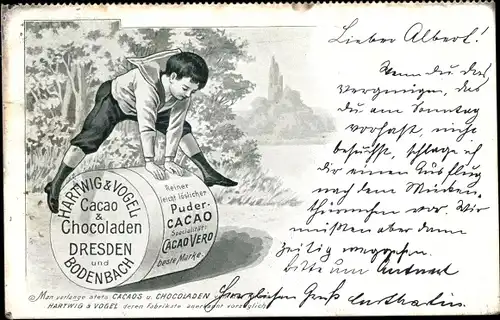 HARTWIG & VOGEL
Cacao
&
Chocoladen
DRESDEN
und
BODENBACH
Reiner
leicht löslicher
Puder-
CACAO
Specialität:
CACAO VERO
beste Marke.
Man verlange stets: CACAOS u. CHOCOLADEN
HARTWIG & VOGEL deren Fabrikate anerkannt vorzüglich
Lieber Albert!
Wenn du das
vergnügen, das
du am Sonntag
vorhast, nicht
besuchst, schlage ich
dir einen Ausflug
nach dem
vor. Wir
müssen aber dann
zeitig
Bitte um Antwort
Herzlichen Gruß